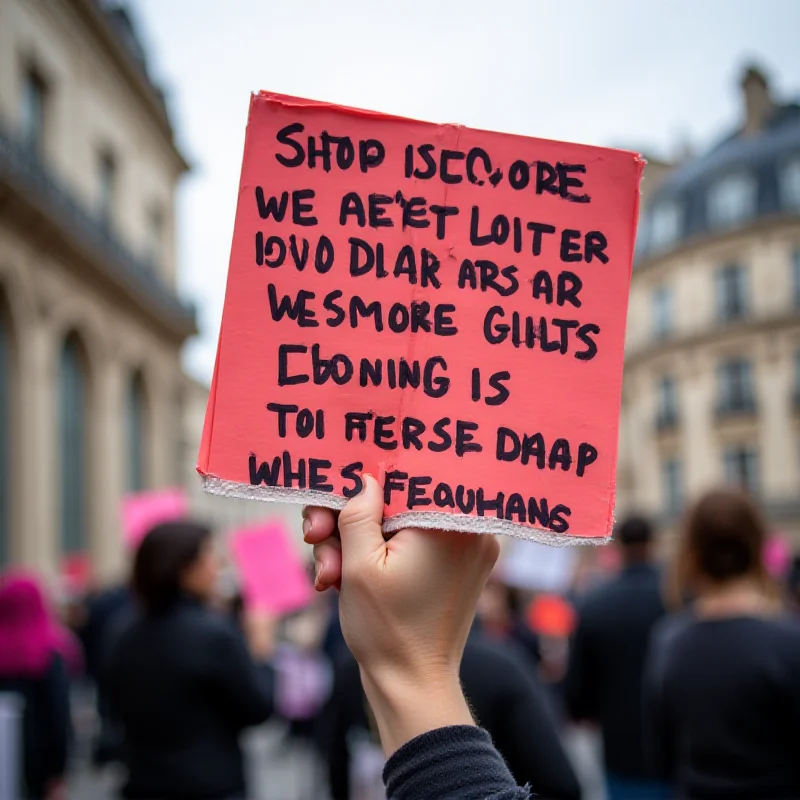 SHOP ISCO,ORE
WE AE'ET LOITER
IOVO DIAR ARS AR
WESMORE GIILTS
EBONING IS
TOI FERSE DAAP
WHES FEQUHANS